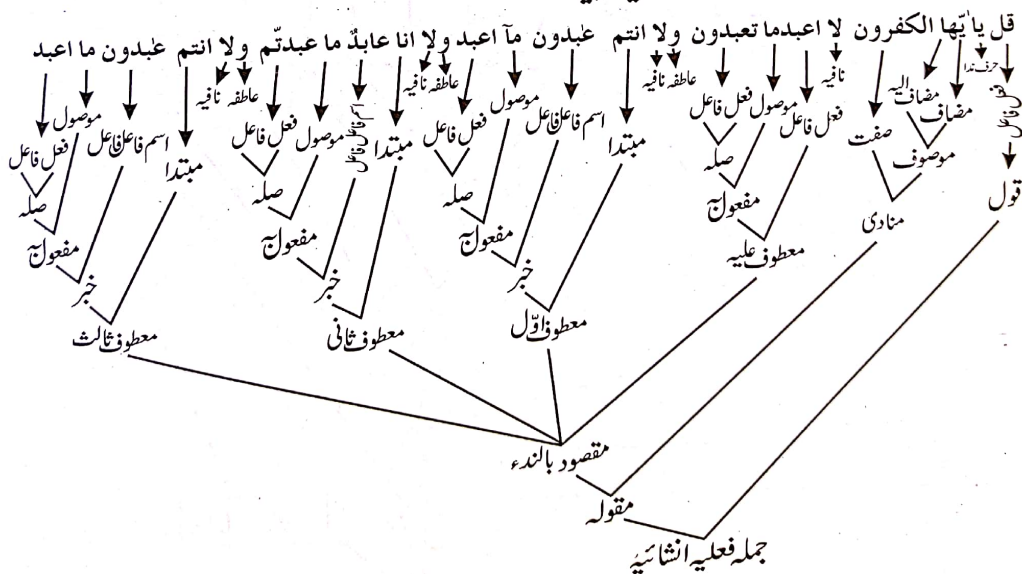 قل یا یّها الکفرون لا اعبد ما تعبدون ولا انتم عٰبدون مآ اعبد ولا انا عابدٌ ما عبدتّم ولا انتم عٰبدون ما اعبد
فعل فاعل حرف ندا مضاف مضاف الیہ صفت نافیہ فعل فاعل موصول فعل فاعل عاطفہ نافیہ مبتدا اسم فاعل فاعل موصول فعل فاعل عاطفہ نافیہ مبتدا اسم فاعل فاعل موصول فعل فاعل عاطفہ نافیہ مبتدا اسم فاعل فاعل موصول فعل فاعل
قول موصوف صلہ صلہ صلہ صلہ
منادیٰ مفعول بہ مفعول بہ مفعول بہ مفعول بہ
معطوف علیہ خبر خبر خبر
معطوف اوّل معطوف ثانی معطوف ثالث
مقصود بالندء
مقولہ
جملہ فعلیہ انشائیہ